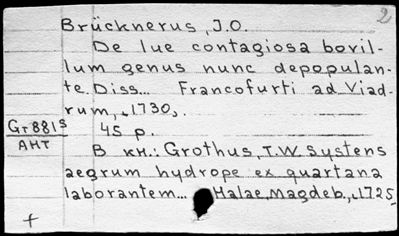 2
Brücknerus, J.O.
De lue contagiosa bovil-
lum genus nunc depopulan-
te. Diss... Francofurti ad Viad-
rum, 1730.
Gr881s
АНТ
45 p.
В кн.: Grothus, T.W. Systens
aegrum hydrope ex quartana
laborantem... Halae Magdeb., 1725
+